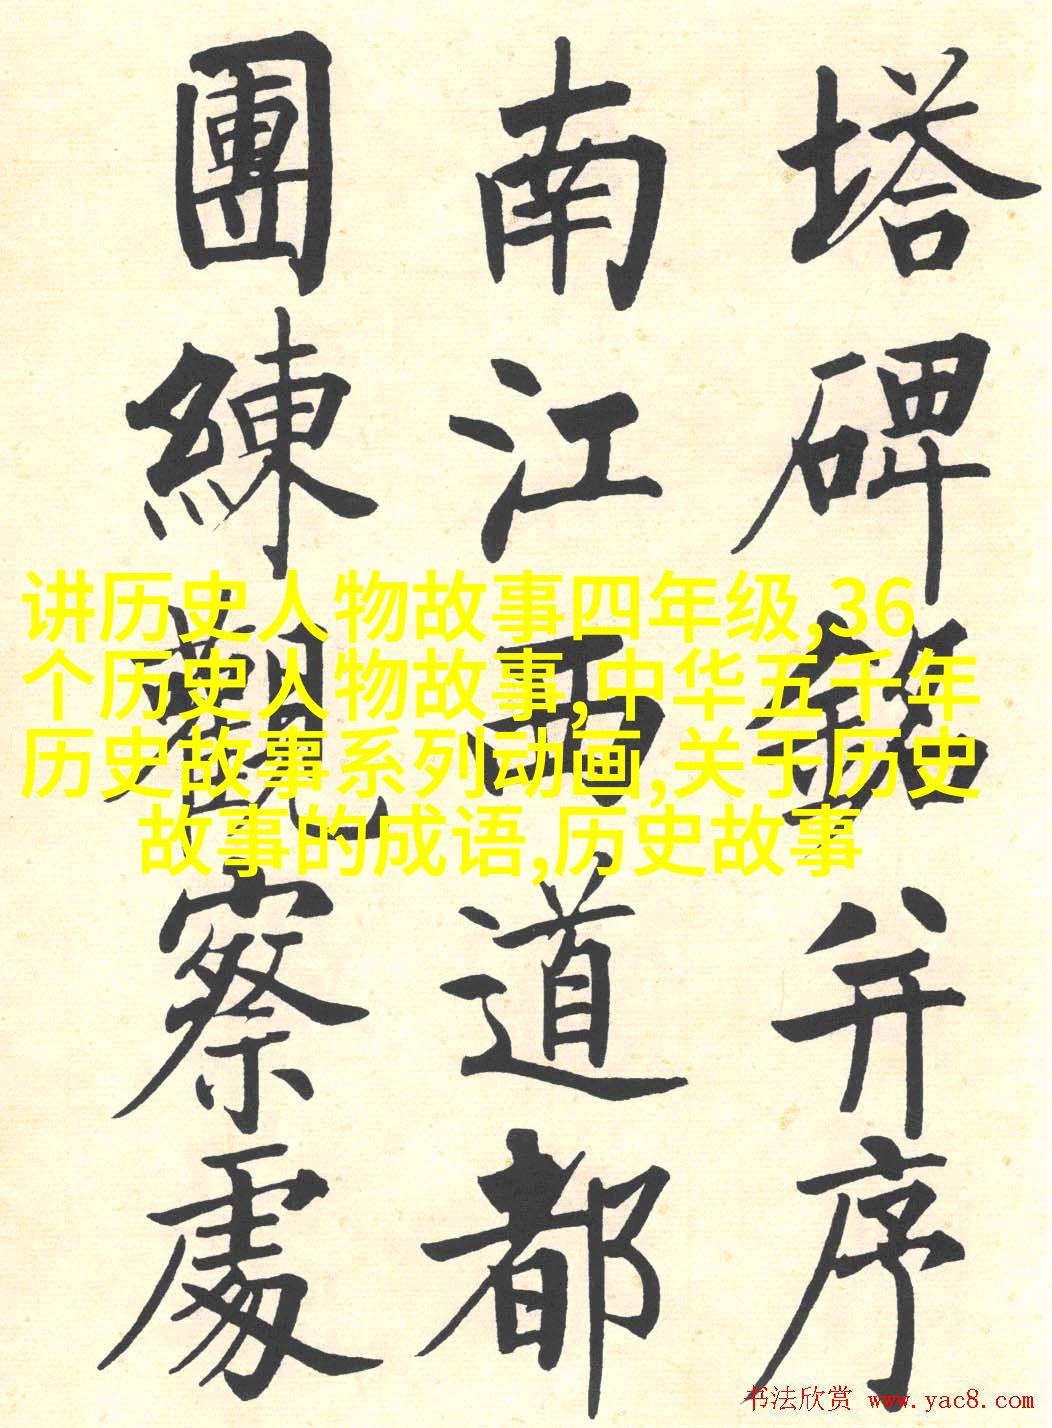 塔碑銘并序
南江西道都
團練觀察處
讲历史人物故事四年级,36
个历史人物故事,中华五千年
历史故事系列动画,关于历史
故事的成语,历史故事
书法欣赏 www.yac8.com